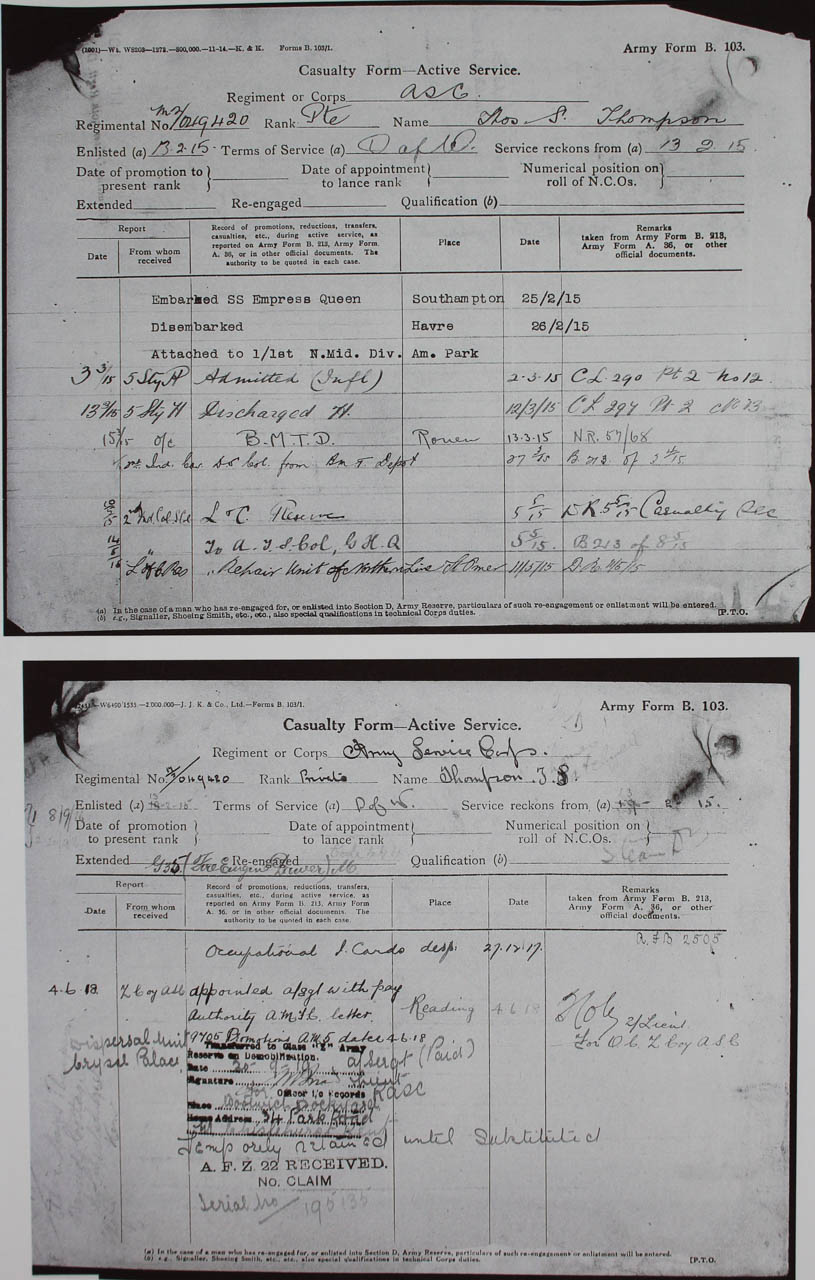 (2001)—Wt. W5203—1273.—800,000.—11-14.—K. & K. Forms B. 103/1.
Army Form B. 103.
Casualty Form—Active Service.
Regiment or Corps ASC
Regimental No. M2/049420 Rank Pte Name Thos S. Thompson
Enlisted (a) 13.2.15. Terms of Service (a) D of W. Service reckons from (a) 13 2 15.
Date of promotion to present rank } Date of appointment to lance rank } Numerical position on roll of N.C.Os. }
Extended Re-engaged Qualification (b)
Report
Date From whom received
Record of promotions, reductions, transfers, casualties, etc., during active service, as reported on Army Form B. 213, Army Form A. 36, or in other official documents. The authority to be quoted in each case.
Place
Date
Remarks taken from Army Form B. 213, Army Form A. 36, or other official documents.
Embarked SS Empress Queen Southampton 25/2/15
Disembarked Havre 26/2/15
Attached to 1/1st N.Mid. Div. Am. Park
3 3/15 5 Sty H Admitted (Infl) 2-3-15 CL 290 Pt 2 No 12.
13 3/15 5 Sty H Discharged H. 12/3/15 CL 297 Pt 2
15 3/15 o/c B.M.T.D. Rouen 13.3.15 N.R. 57/68
Ind. Cav. Col. from Bn T. Depot 27 3/15 B 213 of
L of C Reserve 5 5/15 Casualty
To A.T.S. Col, G.H.Q 5 5/15. B213 of 8 5/15
Repair Unit of Northern Line St Omer 11/5/15
(a) In the case of a man who has re-engaged for, or enlisted into Section D, Army Reserve, particulars of such re-engagement or enlistment will be entered.
(b) e.g., Signaller, Shoeing Smith, etc., etc., also special qualifications in technical Corps duties. [P.T.O.
W6490/1535.—2,000,000—J. J. K. & Co., Ltd.—Forms B. 103/1.
Army Form B. 103.
Casualty Form—Active Service.
Regiment or Corps Army Service Corps.
Regimental No. 2/049420 Rank Private Name Thompson. T. S.
Enlisted (a) 13-2-15 Terms of Service (a) D of W. Service reckons from (a) 2 15.
Date of promotion to present rank } Date of appointment to lance rank } Numerical position on roll of N.C.Os. }
Extended Re-engaged Qualification (b)
Report
Date From whom received
Record of promotions, reductions, transfers, casualties, etc., during active service, as reported on Army Form B. 213, Army Form A. 36, or in other official documents. The authority to be quoted in each case.
Place
Date
Remarks taken from Army Form B. 213, Army Form A. 36, or other official documents.
Occupational I. Cards desp: 27.12.17. 2505
4.6.18. Z Coy ASC appointed a/sgt with pay Reading 4 6 18
Authority A.M.T.C. letter. 2/Lieut
9705 Promotions A.M.5. dated 4.6.18 For O.C. Z Coy A.S.C
Dispersal Unit
Crystal Palace
Transferred to Class "Z" Army
Reserve on Demobilization. a/Sergt (Paid)
Date
Signature
for Officer i/c Records RASC
Place Woolwich Dockyard
Home Address. 34 Park Road
Chislehurst Kent
Temporely retained until Substituted
A. F. Z. 22 RECEIVED.
No. CLAIM
Serial No 195135
(a) In the case of a man who has re-engaged for, or enlisted into Section D, Army Reserve, particulars of such re-engagement or enlistment will be entered.
(b) e.g., Signaller, Shoeing Smith, etc., etc., also special qualifications in technical Corps duties. [P.T.O.